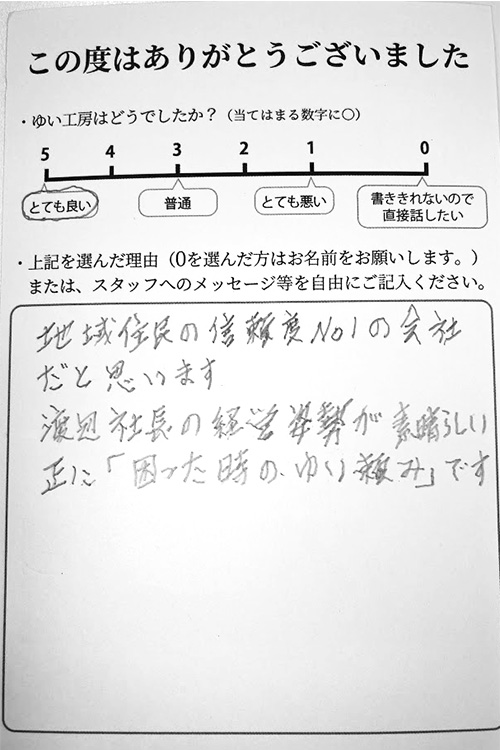 この度はありがとうございました
・ゆい工房はどうでしたか？（当てはまる数字に〇）
5 4 3 2 1 0
とても良い 普通 とても悪い 書ききれないので
直接話したい
・上記を選んだ理由（0を選んだ方はお名前をお願いします。）
または、スタッフへのメッセージ等を自由にご記入ください。
地域住民の信頼度No1の会社
だと思います
渡辺社長の経営姿勢が素晴らしい
正に「困った時のゆい頼み」です